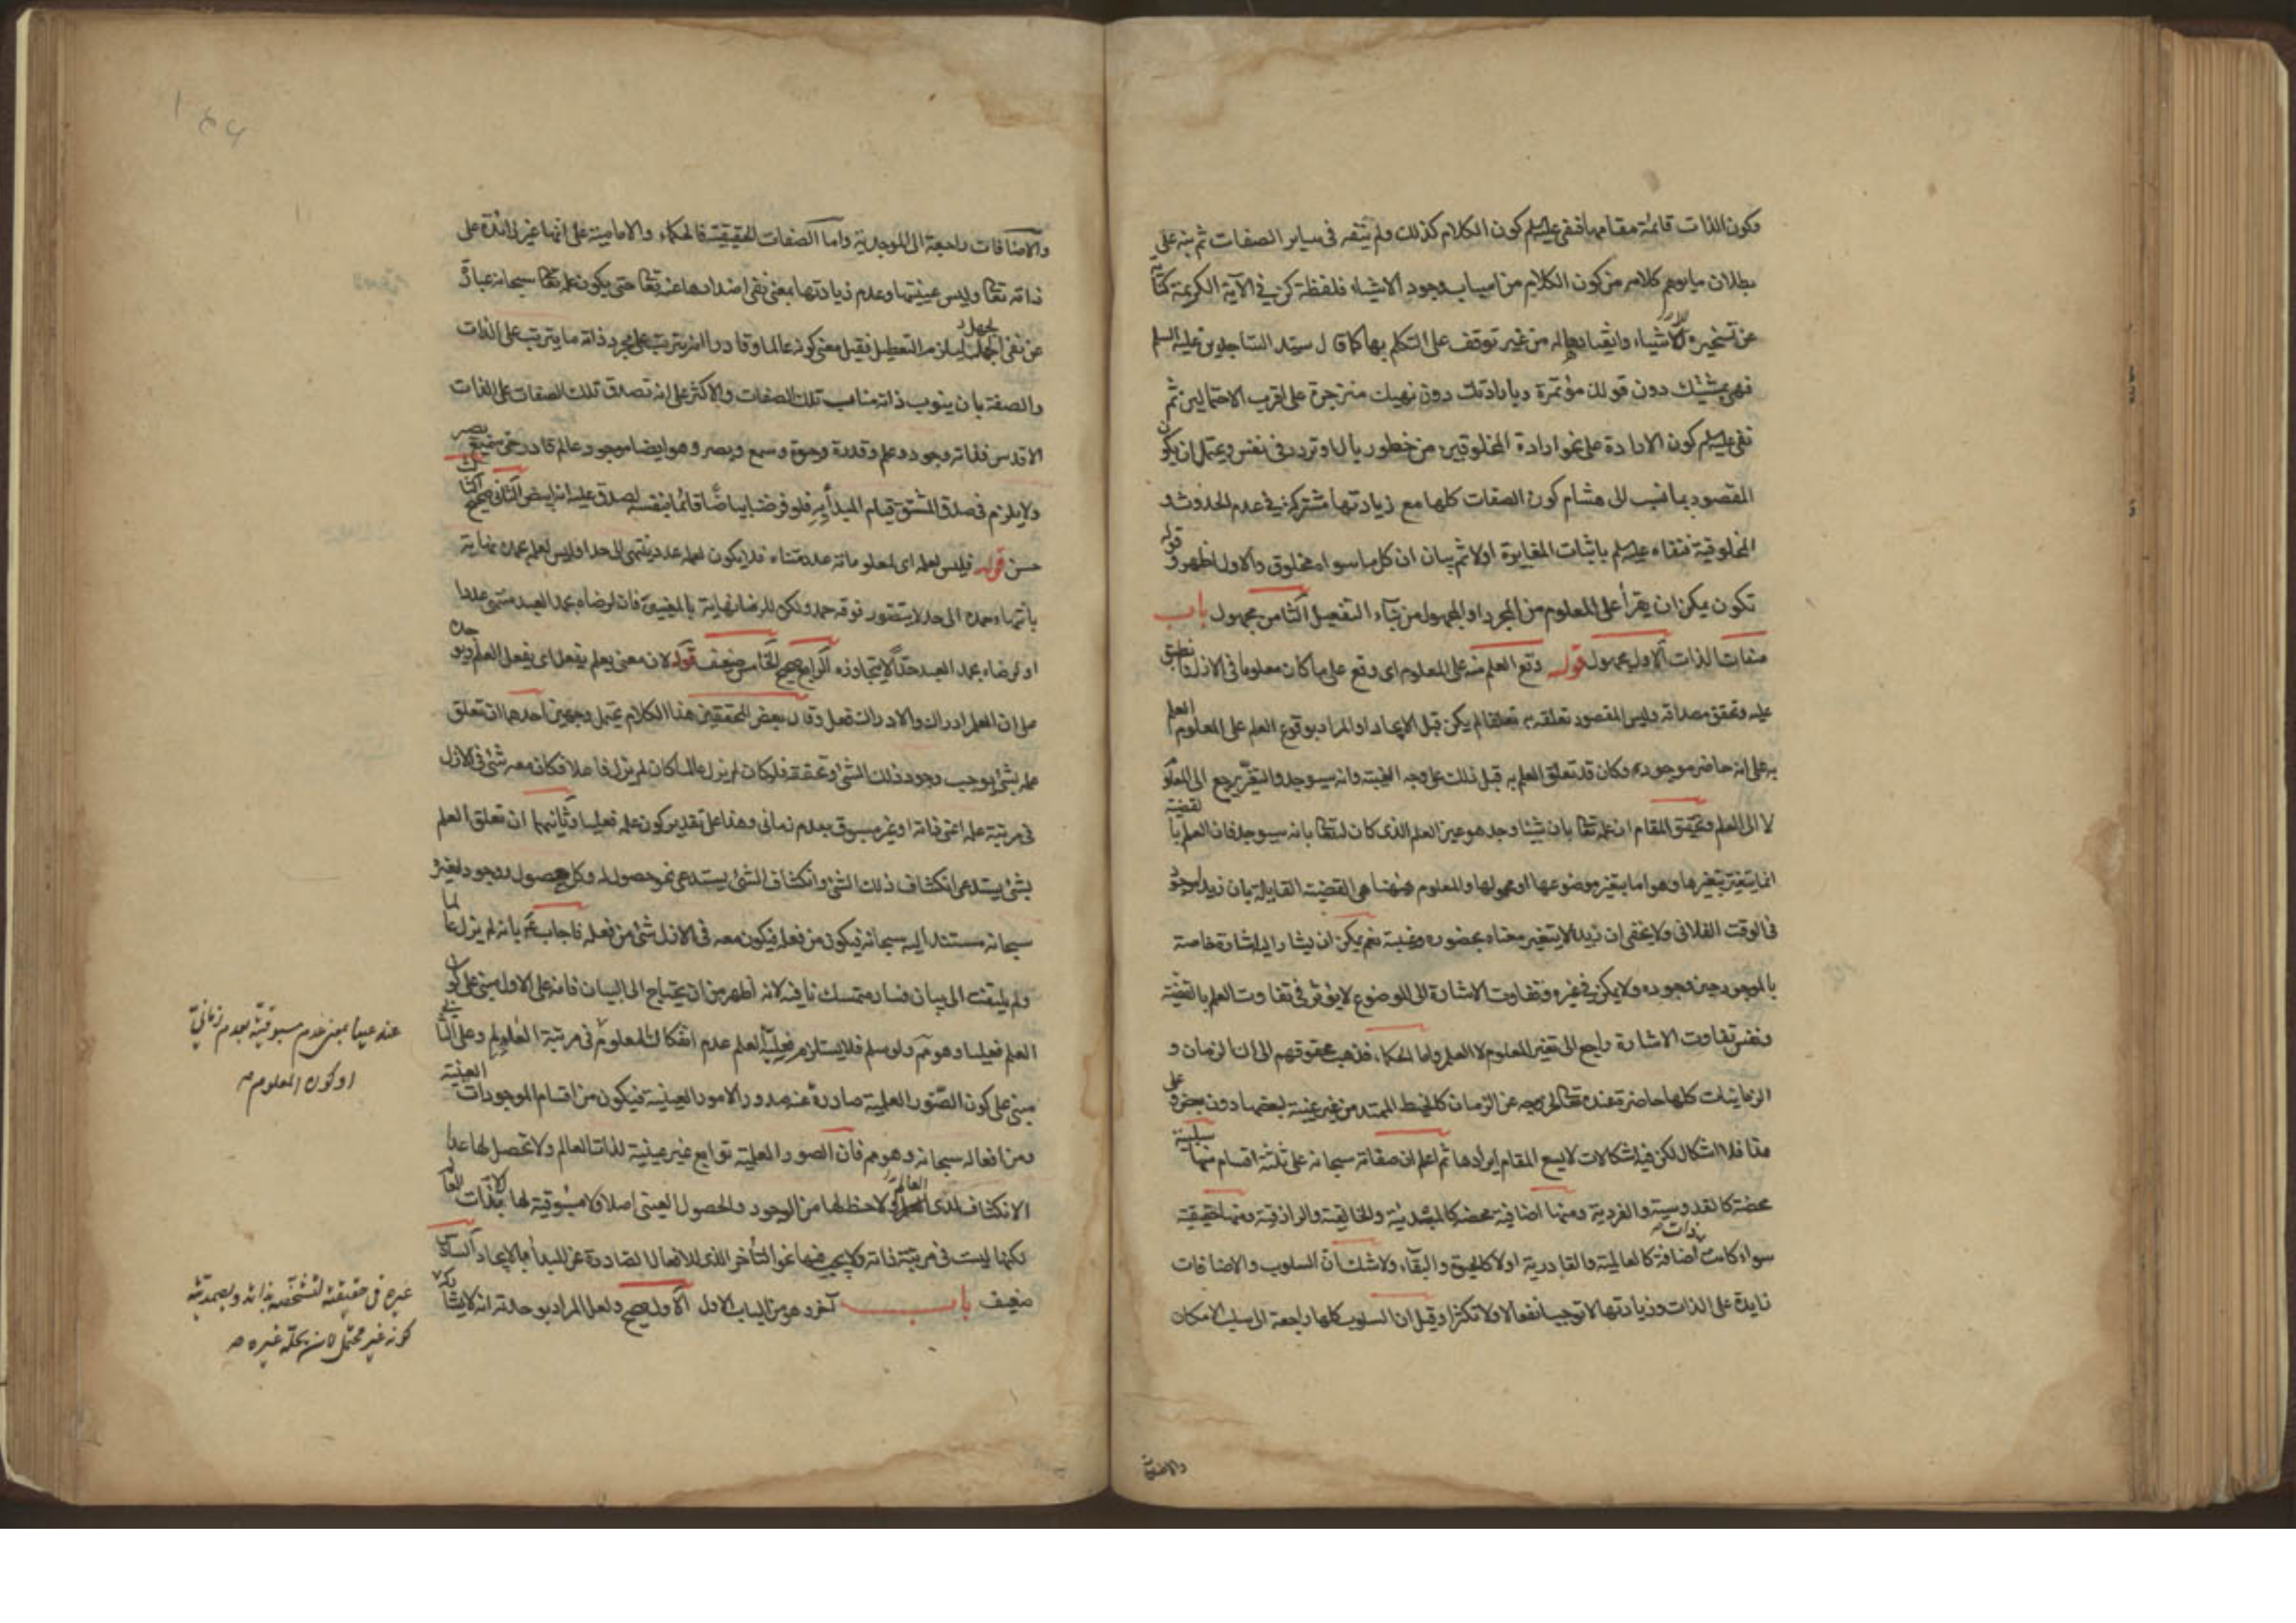 وكون الذات قائمة مقامها فنفى عليه السلم كون الكلام كذلك ولم ينفه فى ساير الصفات ثم نبه على
بطلان ما يوهم كلامه من كون الكلام من اسباب وجود الاشياء فلفظة كن فى الآية الكريمة كناية
عن تسخيره للاشياء وانقيادها له من غير توقف على التكلم بها كما قال سيد الساجدين عليه السلم
فهى بمشيتك دون قولك مؤتمرة وبارادتك دون نهيك منزجرة على اقرب الاحتمالين ثم
نفى عليه السلم كون الارادة على نحو ارادة المخلوقين من خطور بال او تردد فى نفس ويحتمل ان يكون
المقصود بما نسب الى هشام كون الصفات كلها مع زيادتها مشتركة فى عدم الحدوث و
المخلوقية فنفاه عليه السلم باثبات المغايرة اولا ثم بيان ان كل ما سواه مخلوق والاول اظهر و قوله
تكون يمكن ان يقرأ على المعلوم من المجرد او المجهول من بناء التفعيل الثامن مجهول باب
صفات الذات الاول مجهول قوله وقع العلم منه على المعلوم اى وقع على ما كان معلوما فى الازل وانطبق
عليه وتحقق مصداقه وليس المقصود تعلقه به تعلقا لم يكن قبل الايجاد او المراد بوقوع العلم على المعلوم العلم
به على انه حاضر موجود وكان قد تعلق العلم به قبل ذلك على وجه الغيبة وانه سيوجد والتغير يرجع الى المعلوم
لا الى العلم وتحقيق المقام ان علمه تعالى بان شيئا وجد هو عين العلم الذى كان له تعالى بانه سيوجد فان العلم بالقضية
انما يتغير بتغيرها وهو اما بتغير موضوعها او محمولها والمعلوم ههنا هى القضية القايلة بان زيدا موجود
فى الوقت الفلانى ولا يخفى ان زيدا لا يتغير معناه بحضوره وغيبته نعم يمكن ان يشار اليه اشارة خاصة
بالموجود حين وجوده ولا يمكن فى غيره وتفاوت الاشارة الى الموضوع لا يؤثر فى تفاوت العلم بالقضية
ونفس تفاوت الاشارة راجع الى تغير المعلوم لا العلم واما الحكماء فذهب محققوهم الى ان الزمان و
الزمانيات كلها حاضرة عنده تعالى لخروجه عن الزمان كالخيط الممتد من غير غيبة لبعضها دون بعض وعلى
هذا فلا اشكال لكن فيه اشكالات لا يسع المقام ايرادها ثم اعلم ان صفاته سبحانه على ثلثة اقسام منها سلبية
محضة كالقدوسية والفردية ومنها اضافية محضة كالمبدئية والخالقية والرازقية ومنها حقيقية
سواء كانت ذات اضافة كالعالمية والقادرية اولا كالحيوة والبقاء ولا شك ان السلوب والاضافات
زايدة على الذات وزيادتها لا توجب انفعالا ولا تكثرا وقيل ان السلوب كلها راجعة الى سلب الامكان
والاضافات
والاضافات راجعة الى الموجدية واما الصفات الحقيقية فالحكماء والامامية على انها غير زائدة على
ذاته تعالى وليس عينيتها وعدم زيادتها بمعنى نفى اضدادها عنه تعالى حتى يكون علمه تعالى سبحانه عبارة
عن نفى الجهل ليلزم التعطيل فقيل معنى كونه عالما وقادرا انه يترتب على مجرد ذاته ما يترتب على الذات
والصفة بان ينوب ذاته مناب تلك الصفات والاكثر على انه تصدق تلك الصفات على الذات
الاقدس فذاته وجود وعلم وقدرة وحيوة وسمع وبصر وهو ايضا موجود عالم قادر حى سميع بصير
ولا يلزم فى صدق المشتق قيام المبدأ به فلو فرضنا بياضا قائما بنفسه لصدق عليه انه ابيض الثانى صحيح الثالث
حسن قوله فليس لعلمه اى لمعلوماته عدد متناه فلا يكون لعلمه عدد ينتهى الى حد او ليس لعلمه نهاية
بانتهاء حمده الى حد لا يتصور فوقه حمد ولكن للرضا نهاية بالمعنيين فان لرضاه بحمد العبد منتهى عددا
او لرضاه بحمد العبد حدا لا يتجاوزه الرابع صحيح الخامس ضعيف قوله لان معنى يعلم يفعل اى يفعل العلم
على ان العلم ادراك والادراك فعل وقال بعض المحققين هذا الكلام يحتمل وجهين احدهما ان تعلق
علمه بشئ يوجب وجود ذلك الشئ وتحققه فلو كان لم يزل عالما كان لم يزل فاعلا فكان معه شئ فى الازل
فى مرتبة علمه اعنى ذاته او غير مسبوق بعدم زمانى وهذا على تقدير كون علمه فعليا وثانيهما ان تعلق العلم
بشئ يستدعى انكشاف ذلك الشئ وانكشاف الشئ يستدعى نحو حصول له وكل حصول ووجود لغيره
سبحانه مستند اليه سبحانه فيكون من فعله فيكون معه فى الازل شئ من فعله فاجاب ع بانه لم يزل عالما
ولم يلتفت الى بيان فساد متمسك نافيه لانه اظهر من ان يحتاج الى البيان فانه على الاول مبنى على كون
العلم فعليا وهو مم ولو سلم فلا يستلزم فعلية العلم عدم انفكاك المعلوم فى مرتبة العلم وعلى الثانى
مبنى على كون الصور العلمية صادرة عنه صدور الامور العينية فيكون من اقسام الموجودات العينية
ومن افعاله سبحانه وهو مم فان الصور العلمية توابع غير عينية لذات العالم ولا تحصل لها عدا
الانكشاف لدى العالم ولا حظ لها من الوجود والحصول العينى اصلا ولا مسبوقية لها الا بذات العالم
لكنها ليست فى مرتبة ذاته ولا يجب فيها نحو التأخر الذى للافعال الصادرة عن المبدأ بالايجاد السادس
ضعيف باب آخر وهو من الباب الاول الاول صحيح ولعل المراد بوحدته انه لا يشاركه
عنه عينا بمعنى عدم مسبوقيته بعدم زمانى
او كون المعلوم صح
غيره فى حقيقته لتشخصه بذاته وبصمديته
كونه غير محتمل لان يحله غيره صح